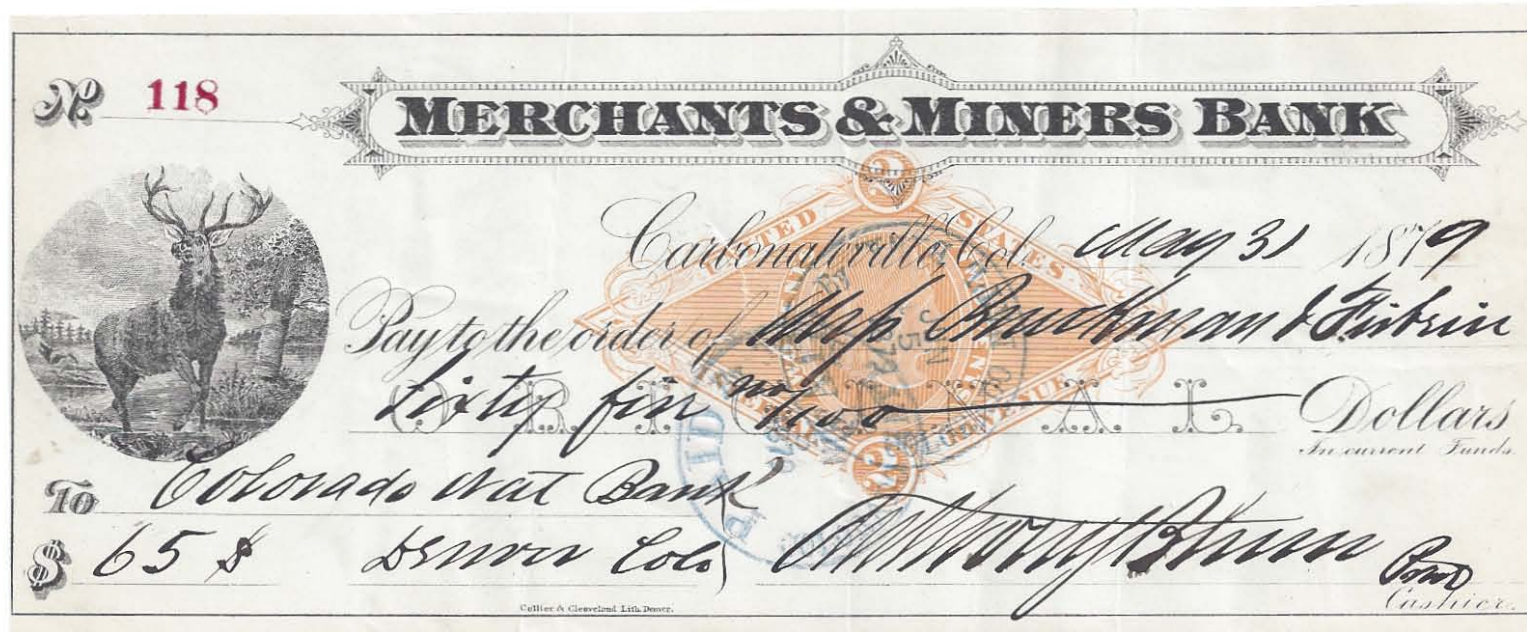 No 118
MERCHANTS & MINERS BANK
2
UNITED STATES
Carbonateville, Col. May 31 1879
Pay to the order of & 
Sixty five no/100 Dollars
ORIGINAL
In current Funds.
INTERNAL REVENUE
2
PAID
To Colorado Nat Bank
$ 65 $ Denver Colo
Cashier.
Collier & Cleaveland Lith. Denver.